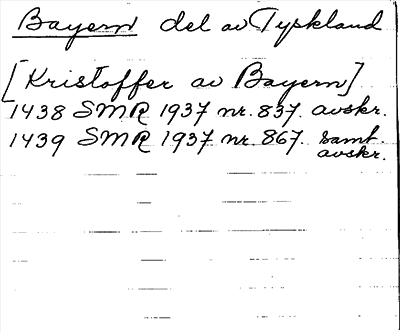 Bayern del av Tyskland
[Kristoffer av Bayern]
1438 SMR 1937 nr. 837. avskr.
1439 SMR 1937 nr. 867. samt.
avskr.